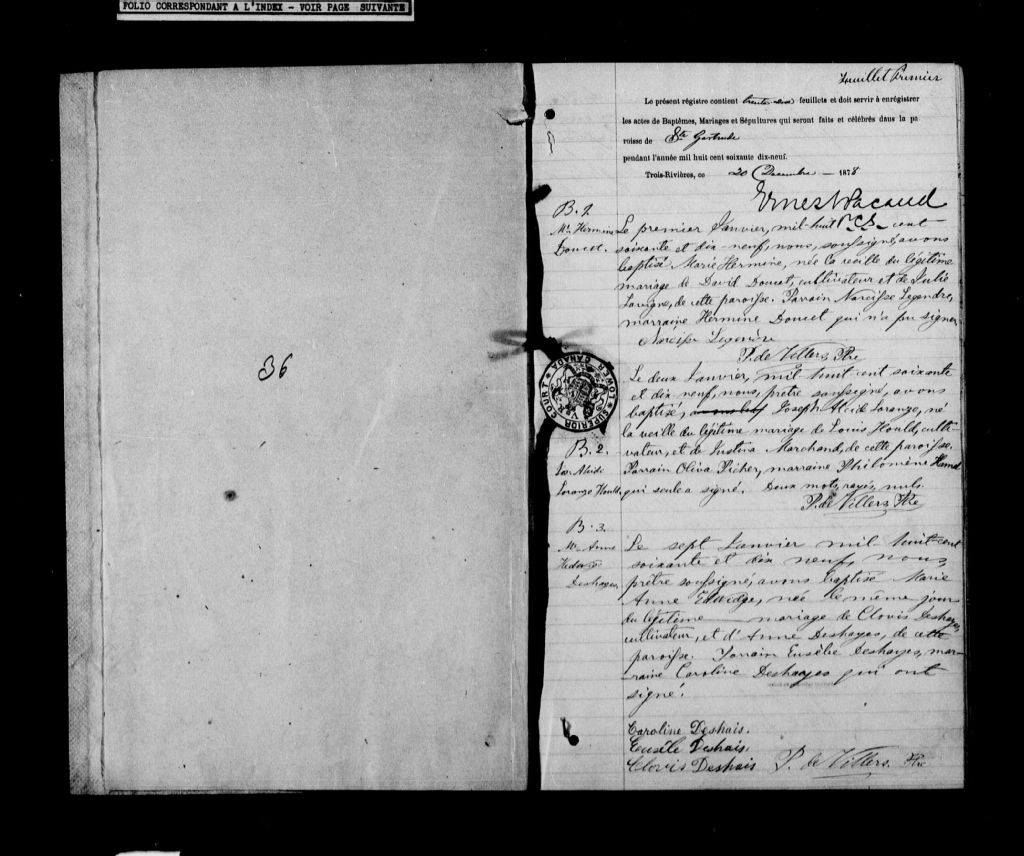 FOLIO CORRESPONDANT A L'INDEX - VOIR PAGE SUIVANTE
36
Feuillet Premier
Le présent régistre contient feuillets et doit servir à enrégistrer
les actes de Baptêmes, Mariages et Sépultures qui seront faits et célébrés dans la pa
roisse de Ste Gertrude
pendant l'année mil huit cent soixante dix-neuf.
Trois-Rivières, ce 20 Decembre — 1878
Ernest Pacaud
P.C.S.
B. 1.
Me Hermine
Doucet.
Le premier Janvier, mil-huit cent
soixante et dix-neuf, nous, soussigné, avons
baptisé Marie Hermine, née la veille du légitime
mariage de David Doucet, cultivateur et de Julie
Lavigne, de cette paroisse. Parrain Narcisse Legendre,
marraine Hermine Doucet qui n'a pu signer
Narcisse Legendre
P. de Villers Ptre
SUPERIOR COURT LOWER CANADA
V R
B. 2.
Jos. Alcide
Lorange Hould
Le deux Janvier, mil-huit-cent soixante
et dix neuf, nous, prêtre soussigné, avons
baptisé, Joseph Alcide Lorange, né
la veille du légitime mariage de Louis Hould, culti-
vateur, et de Justina Marchand, de cette paroisse.
Parrain Oliva Picher, marraine Philomène Hamel
qui seule a signé. Deux mots rayés nuls.
P. de Villers Ptre
B. 3.
Me Anne
Hedwige
Deshayes
Le sept Janvier mil huit-cent
soixante et dix neuf, nous,
prêtre soussigné, avons baptisé Marie
Anne Edwidge, née le même jour
du légitime mariage de Clovis Deshayes,
cultivateur, et d'Anne Deshayes, de cette
paroisse. Parrain Eusèbe Deshayes, mar-
raine Caroline Deshayes qui ont
signé.
Caroline Deshais.
Eusèbe Deshais.
Clovis Deshais P. de Villers Ptre